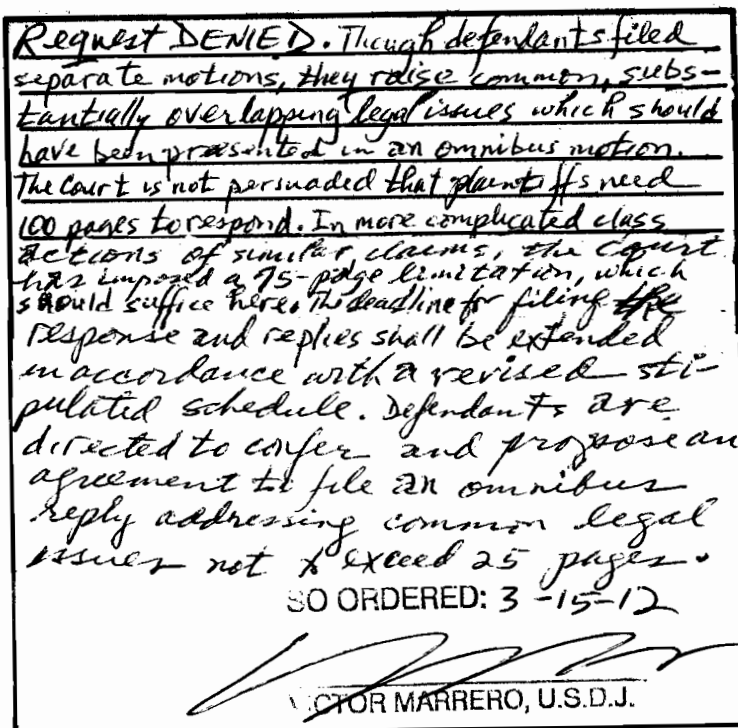 Request DENIED. Though defendants filed
separate motions, they raise common, subs-
tantially overlapping legal issues which should
have been presented in an omnibus motion.
The Court is not persuaded that plaintiffs need
100 pages to respond. In more complicated class
actions of similar claims, the Court
has imposed a 75-page limitation, which
should suffice here. The deadline for filing the
response and replies shall be extended
in accordance with a revised sti-
pulated schedule. Defendants are
directed to confer and propose an
agreement to file an omnibus
reply addressing common legal
issues not to exceed 25 pages.
SO ORDERED: 3-15-12
VICTOR MARRERO, U.S.D.J.